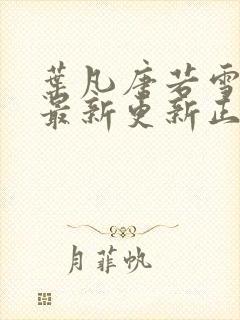 葉凡唐若雪
最新更新正
月菲帆